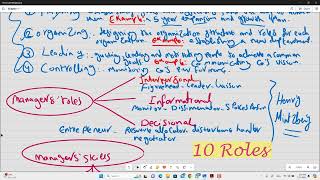 them Example: 5 year expansion and growth plan.
② organizing: designing the organization structure and tasks for each
organization example: establishing a new department.
③ Leading: guiding, leading and motivating people to achieve a common
goals example: communicating CO's vision.
④ Controlling: monitoring CO's performance.
Managers' roles
Interpersonal
Figurehead - Leader - Liaison
Informational
Monitor - Disseminator - Spokesperson
Decisional
Entrepreneur - Resource allocator - disturbance handler
negotiator
Henry
Mintzberg
managers' skills
10 Roles